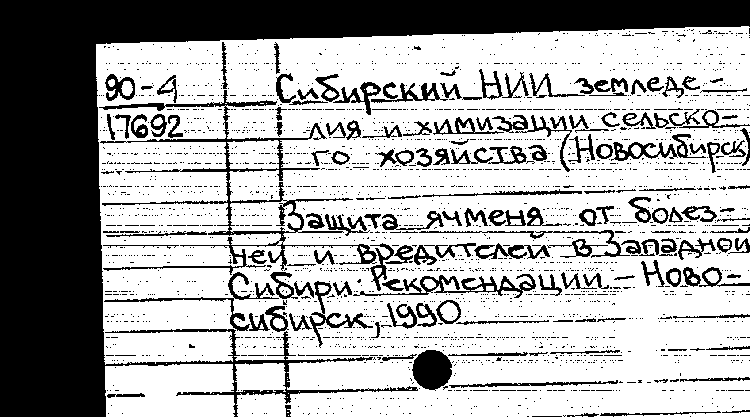 90-4
17692
Сибирский НИИ земледе-
лия и химизации сельско-
го хозяйства (Новосибирск)
Защита ячменя от болез-
ней и вредителей в Западной
Сибири: Рекомендации - Ново-
сибирск, 1990